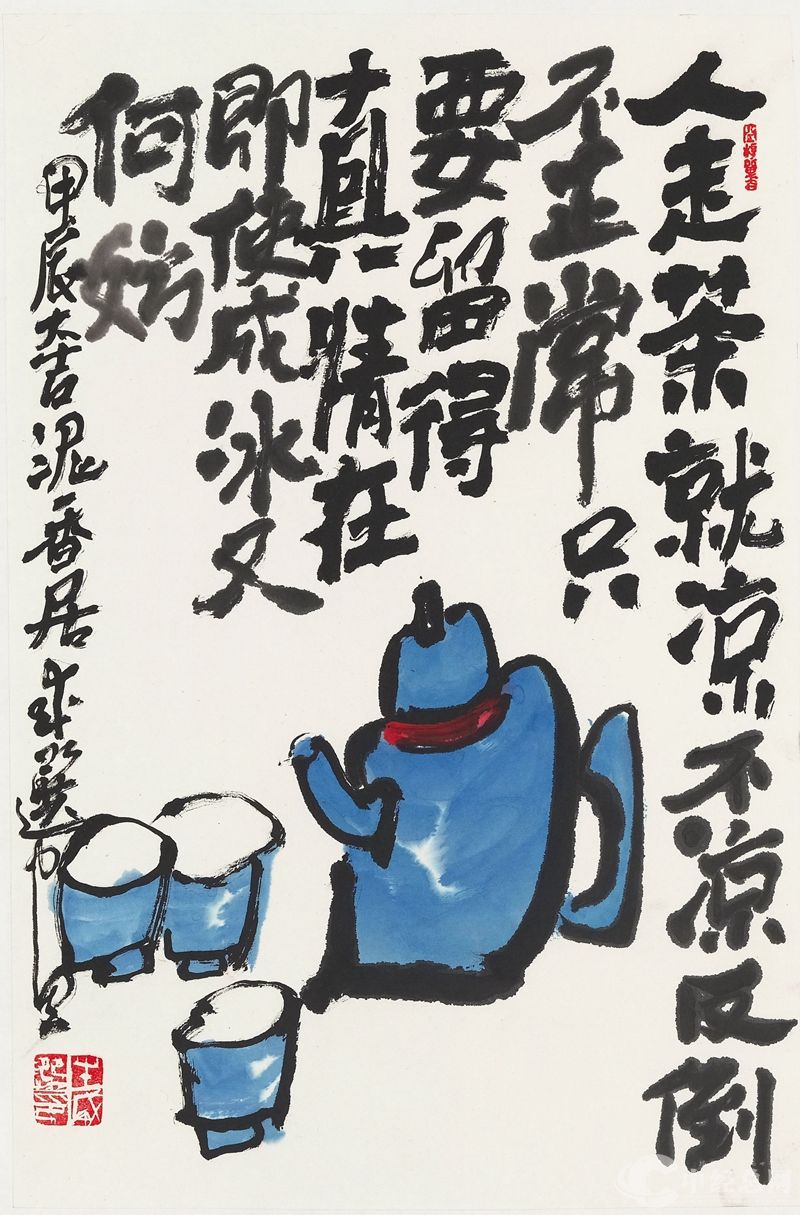 人走茶就凉不凉反倒
不正常只
要留得
真情在
即使成冰又
何妨
甲辰大吉泥香居